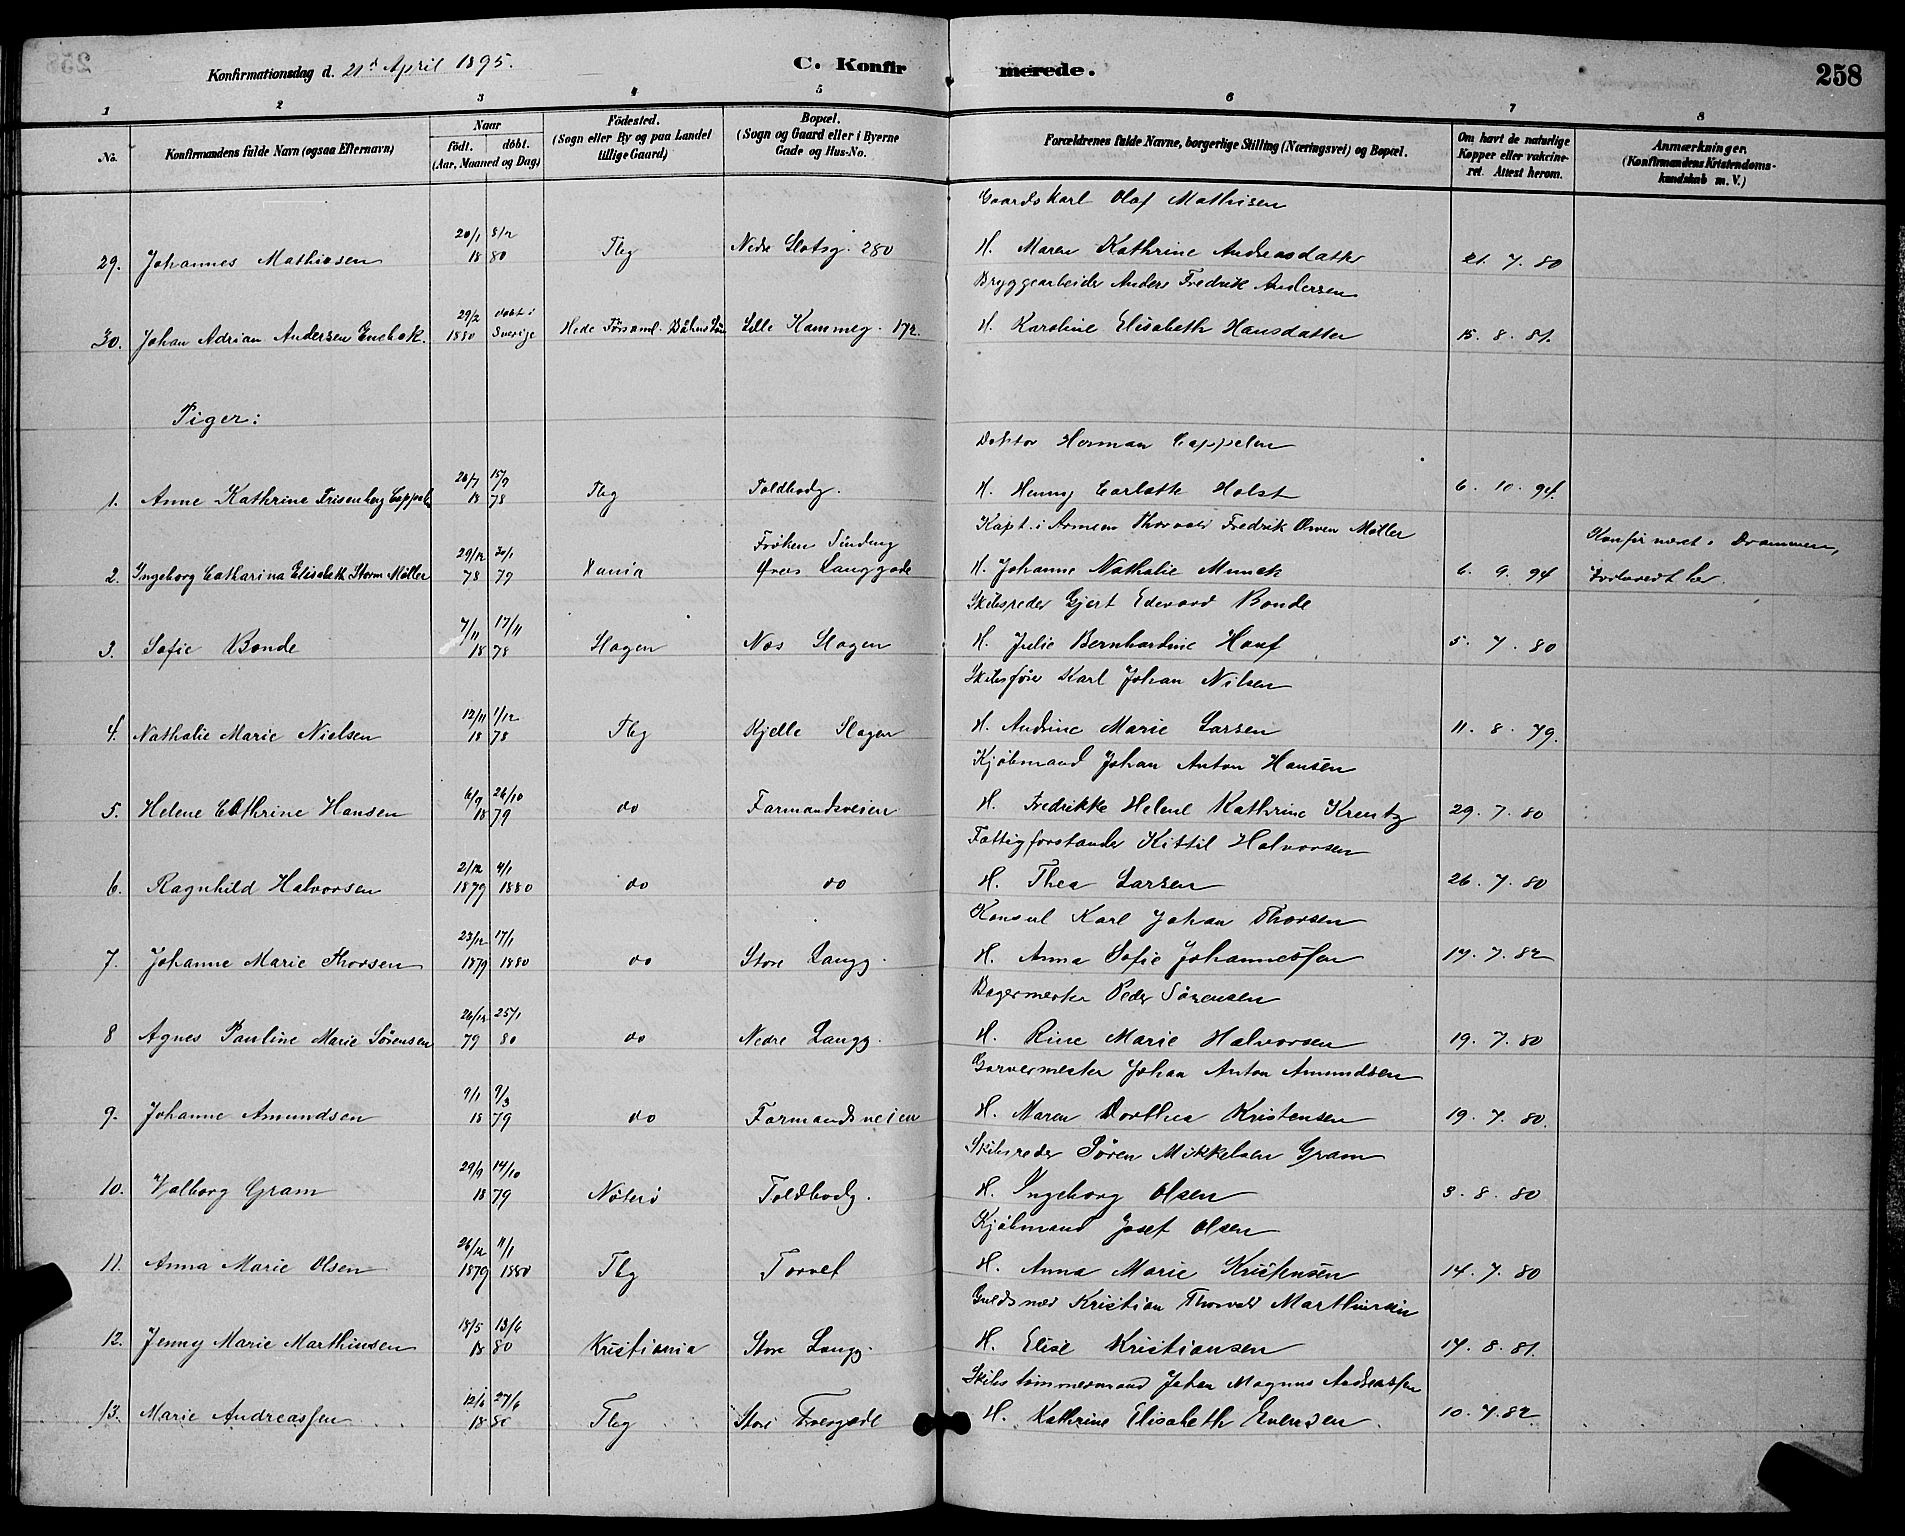 Konfirmationsdag d. 21d April 1895.
C. Konfirmerede.
258
1 2 3 4 5 6 7 8
No. Konfirmandens fulde Navn (ogsaa Efternavn) Naar födt. döbt. (Aar, Maaned og Dag) Födested. (Sogn eller By og paa Landet tillige Gaard) Bopæl. (Sogn og Gaard eller i Byerne Gade og Hus-No. Forældrenes fulde Navne, borgerlige Stilling (Næringsvei) og Bopæl. Om havt de naturlige Kopper eller vakcineret. Attest herom. Anmærkninger. (Konfirmandens Kristendomskundskab m. V.)
Gaardskarl Olaf Mathisen
29. Johannes Mathiesen 20/1 8/2 18 80 Tbg Nedre Slotsg. 280 H. Maren Kathrine Andreasdatter 21. 7. 80
Bryggearbeider Anders Fredrik Andersen
30. Johan Adrian Andersen Enebak. 29/2 1880 döbt i Sverige Hede Församl. Lille Kammeg. 172. H. Karoline Elisabeth Hansdatter 15. 8. 81.
Piger:
Doktor Herman Cappelen
1. Anne Kathrine Frisenberg Cappeln 26/7 15/9 18 78 Tbg Toldbodg. H. Henny Carlotte Holst 6. 10. 94.
Kapt. i Armeen Thorvald Fredrik Owen Møller
2. Ingeborg Catharina Elisabeth Storm Møller 29/12 30/1 78 79 Xania Frøken Sinding Øvres Langgade H. Johanne Nathalie Munck 6. 9. 94 Konfirmeret i Drammen, her.
Skibsreder Gjert Edevard Bonde
3. Sofie Bonde 7/11 17/11 18 78 Slagen Nes Slagen H. Julie Bernhardine Hauf 5. 7. 80
Skibsfører Karl Johan Nilsen
4. Nathalie Marie Nielsen 12/11 1/12 18 78 Tbg Kjelle Slagen H. Andrine Marie Larsen 11. 8. 79.
Kjøbmand Johan Anton Hansen
5. Helene Cathrine Hansen 6/9 26/10 18 79 do Farmandsveien H. Fredrikke Helene Kathrine Krentz 29. 7. 80
Fattigforstander Kittil Halvorsen
6. Ragnhild Halvorsen 2/12 4/1 1879 1880 do do H. Thea Larsen 26. 7. 80
Konsul Karl Johan Thorsen
7. Johanne Marie Thorsen 23/12 17/1 1879 1880 do Store Langg. H. Anna Sofie Johannessen 19. 7. 82
Bagermester Peder Sørensen
8 Agnes Pauline Marie Sørensen 26/12 25/1 79 80 do Nedre Langg. H. Rine Marie Halvorsen 19. 7. 80
Garvermester Johan Anton Amundsen
9. Johanne Amundsen 9/1 9/3 18 79 do Farmandsveien H. Maren Dorthea Kristensen 19. 7. 80.
Skibsreder Søren Mikkelsen Gram
10. Valborg Gram 29/9 14/10 18 79 Nøterø Toldbodg. H. Ingeborg Olsen 3. 8. 80
Kjøbmand Josef Olsen
11. Anna Marie Olsen 26/12 11/1 1879 1880 Tbg Torvet H. Anna Marie Kristensen 14. 7. 80
Guldsmed Kristian Thorvald Marthinsen
12. Jenny Marie Marthinsen 18/5 13/6 18 80 Kristiania Store Langg. H. Elise Kristiansen 17. 8. 81.
Skibstømmermand Johan Magnus Andreassen
13. Marie Andreassen 12/6 27/6 18 80 Tbg Store Tvergade H. Kathrine Elisabeth Evensen 10. 7. 82